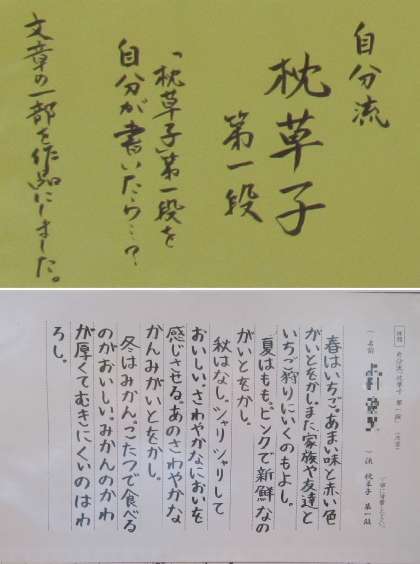 自分流
枕草子
第一段
「枕草子」第一段を
自分が書いたら…?
文章の一部を作品にしました。
自分流、枕草子　第一段
名前
流　枕草子　第一段
春はいちご。あまい味と赤い色
がいとをかし。また家族や友達と
いちご狩りにいくのもよし。
夏はもも。ピンクで新鮮なの
がいとをかし。
秋はなし。シャリシャリして
おいしい。さわやかなにおいを
感じさせる。あのさわやかな
かんみがいとをかし。
冬はみかん。こたつで食べる
のがおいしい。みかんのかわ
が厚くてむきにくいのはわ
ろし。